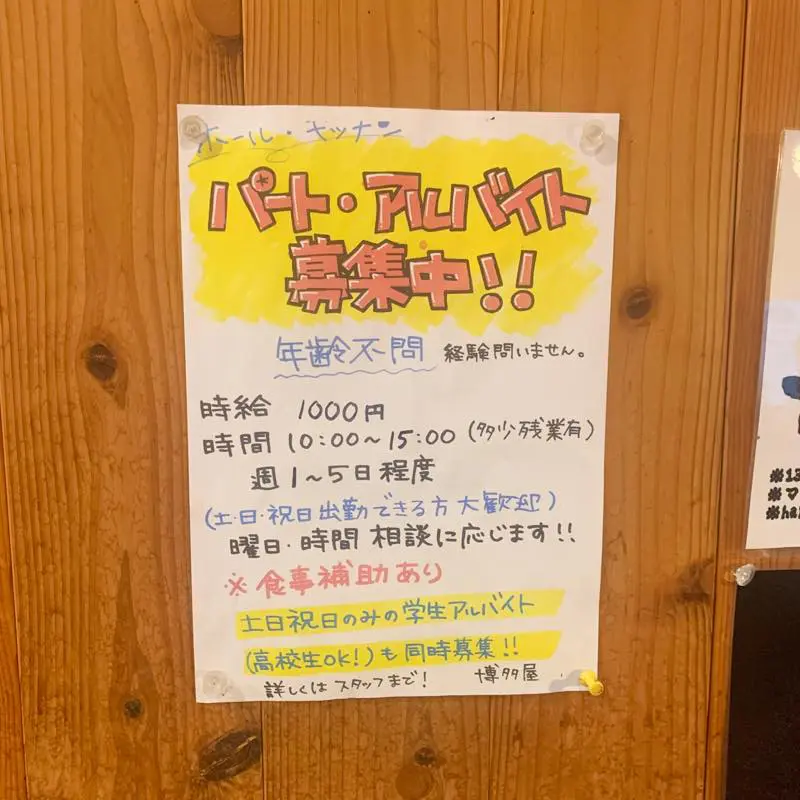 ホール・キッチン
パート・アルバイト
募集中!!
年齢不問 経験問いません。
時給 1000円
時間 10:00~15:00 (多少残業有)
週1~5日程度
(土・日・祝日出勤できる方 大歓迎)
曜日・時間 相談に応じます!!
※食事補助あり
土日祝日のみの学生アルバイト
(高校生OK!)も同時募集!!
詳しくはスタッフまで! 博多屋
※13
※マ
※ha